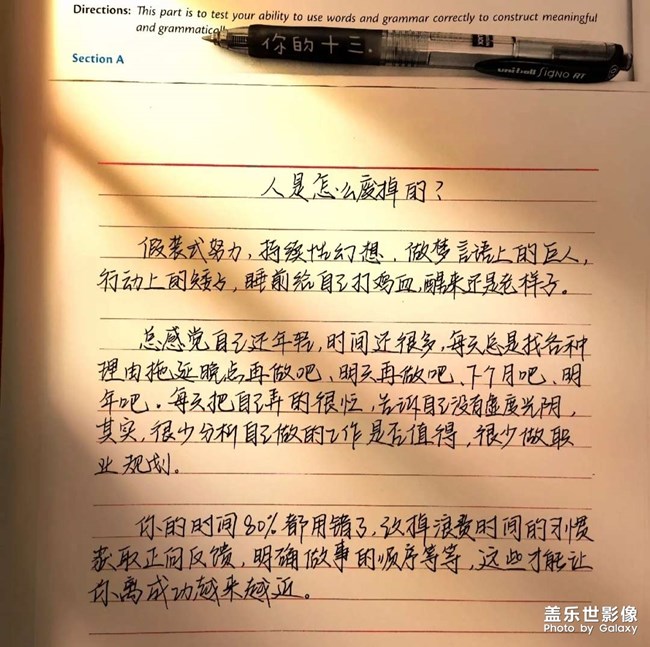 Directions: This part is to test your ability to use words and grammar correctly to construct meaningful
and grammatical
你的十三.
uni-ball SIGNO RT
Section A
人是怎么废掉的?
假装式努力,持续性幻想,做梦言语上的巨人,
行动上的矮子,睡前给自己打鸡血,醒来还是老样子。
总感觉自己还年轻,时间还很多,每天总是找各种
理由拖延晚点再做吧、明天再做吧、下个月吧、明
年吧。每天把自己弄的很忙,告诉自己没有虚度光阴,
其实,很少分析自己做的工作是否值得,很少做职
业规划。
你的时间80%都用错了,改掉浪费时间的习惯
获取正向反馈,明确做事的顺序等等,这些才能让
你离成功越来越近。
盖乐世影像
Photo by Galaxy